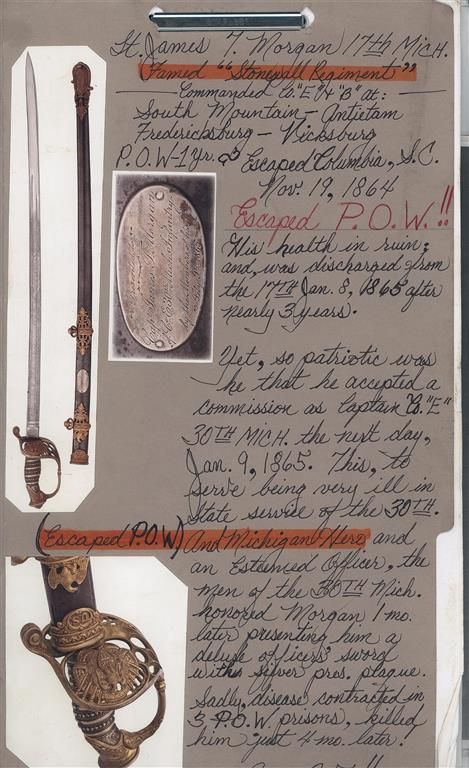 Lt. James T. Morgan 17th Mich.
(Famed "Stonewall Regiment")
Commanded Co. "E" & "B" at:
South Mountain - Antietam
Fredericksburg - Vicksburg
P.O.W - 1 Yr. & Escaped Columbia, S.C.
Nov. 19, 1864
Escaped P.O.W.!!
His health in ruin;
and, was discharged from
the 17TH Jan. 8, 1865 after
nearly 3 years.
Yet, so patriotic was
he that he accepted a
commission as Captain Co. "E"
30TH MICH. the next day,
Jan. 9, 1865. This, to
serve being very ill in
state service of the 30TH.
(Escaped P.O.W) And Michigan Hero and
an Esteemed Officer, the
men of the 30TH Mich.
honored Morgan 1 mo.
later presenting him a
deluxe officers' sword
with silver pres. plaque.
Sadly, disease contracted in
3 P.O.W prisons, killed
him just 4 mo. later.